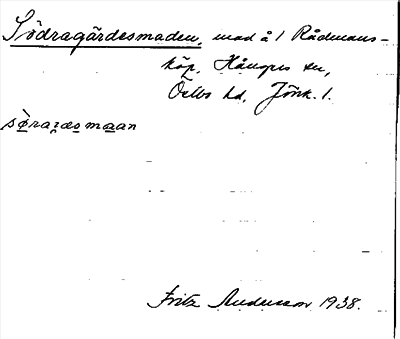 Södragärdesmaden, mad å 1 Rådmans-
köp. Hånger sn,
Östbo hd, Jönk. l.
sø̀raʒæsmaan
Fritz Andersson 1938.